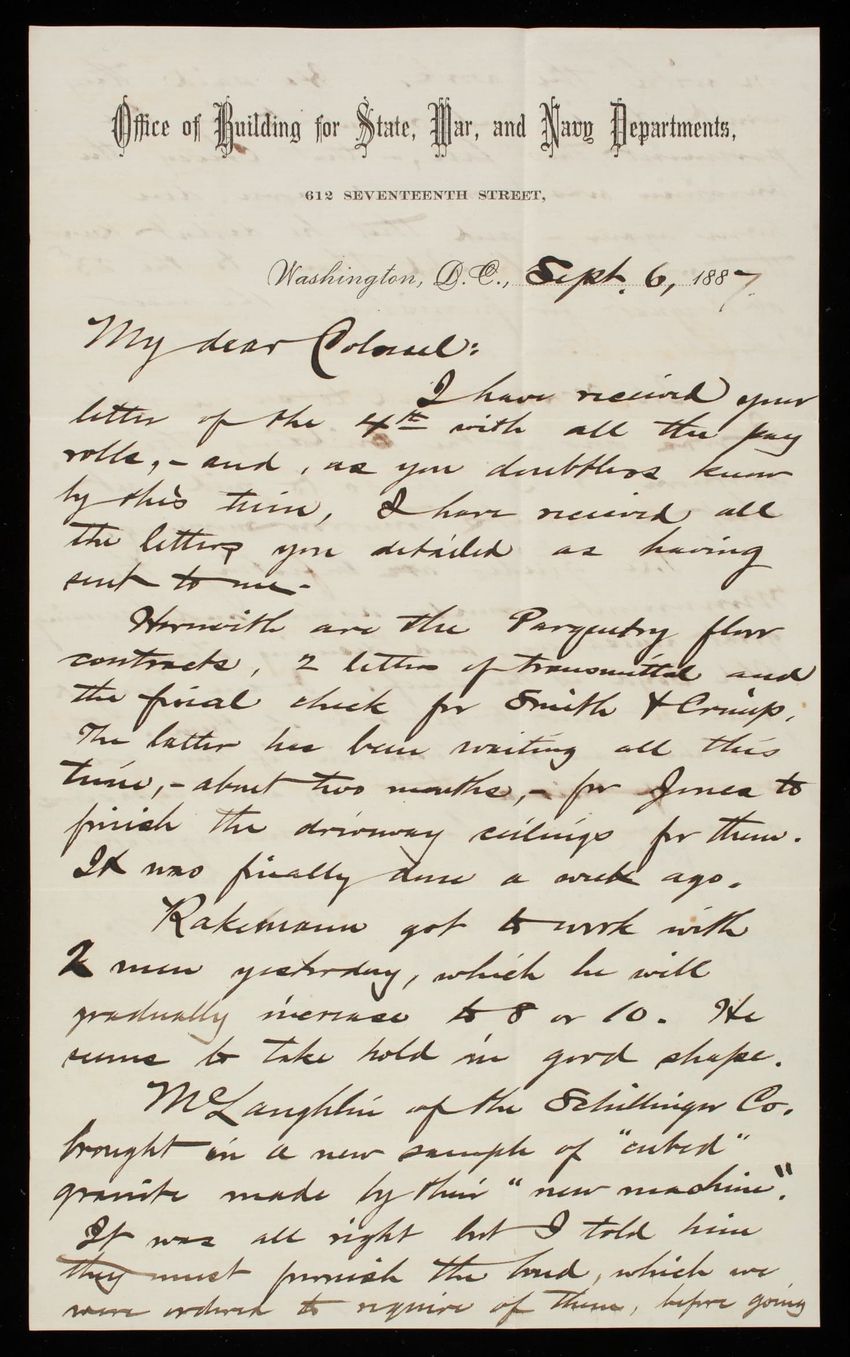 Office of Building for State, War, and Navy Departments,
612 SEVENTEENTH STREET,
Washington, D.C., Sept. 6, 1887.
My dear Colonel:
I have received your
letter of the 4th with all the pay
rolls, - and, as you doubtless know
by this time, I have received all
the letters you detailed as having
sent to me -
Herewith are the Parquetry floor
contracts, 2 letters of transmittal and
the final check for Smith & Crimp.
The latter has been waiting all this
time, - about two months, - for Jones to
finish the driveway ceilings for them.
It was finally done a week ago.
Rakemann got to work with
2 men yesterday, which he will
gradually increase to 8 or 10. He
seems to take hold in good shape.
McLaughlin of the Schillinger Co.
brought in a new sample of "cubed"
granite made by their "new machine".
It was all right but I told him
they must furnish the bond, which we
were ordered to require of them, before going